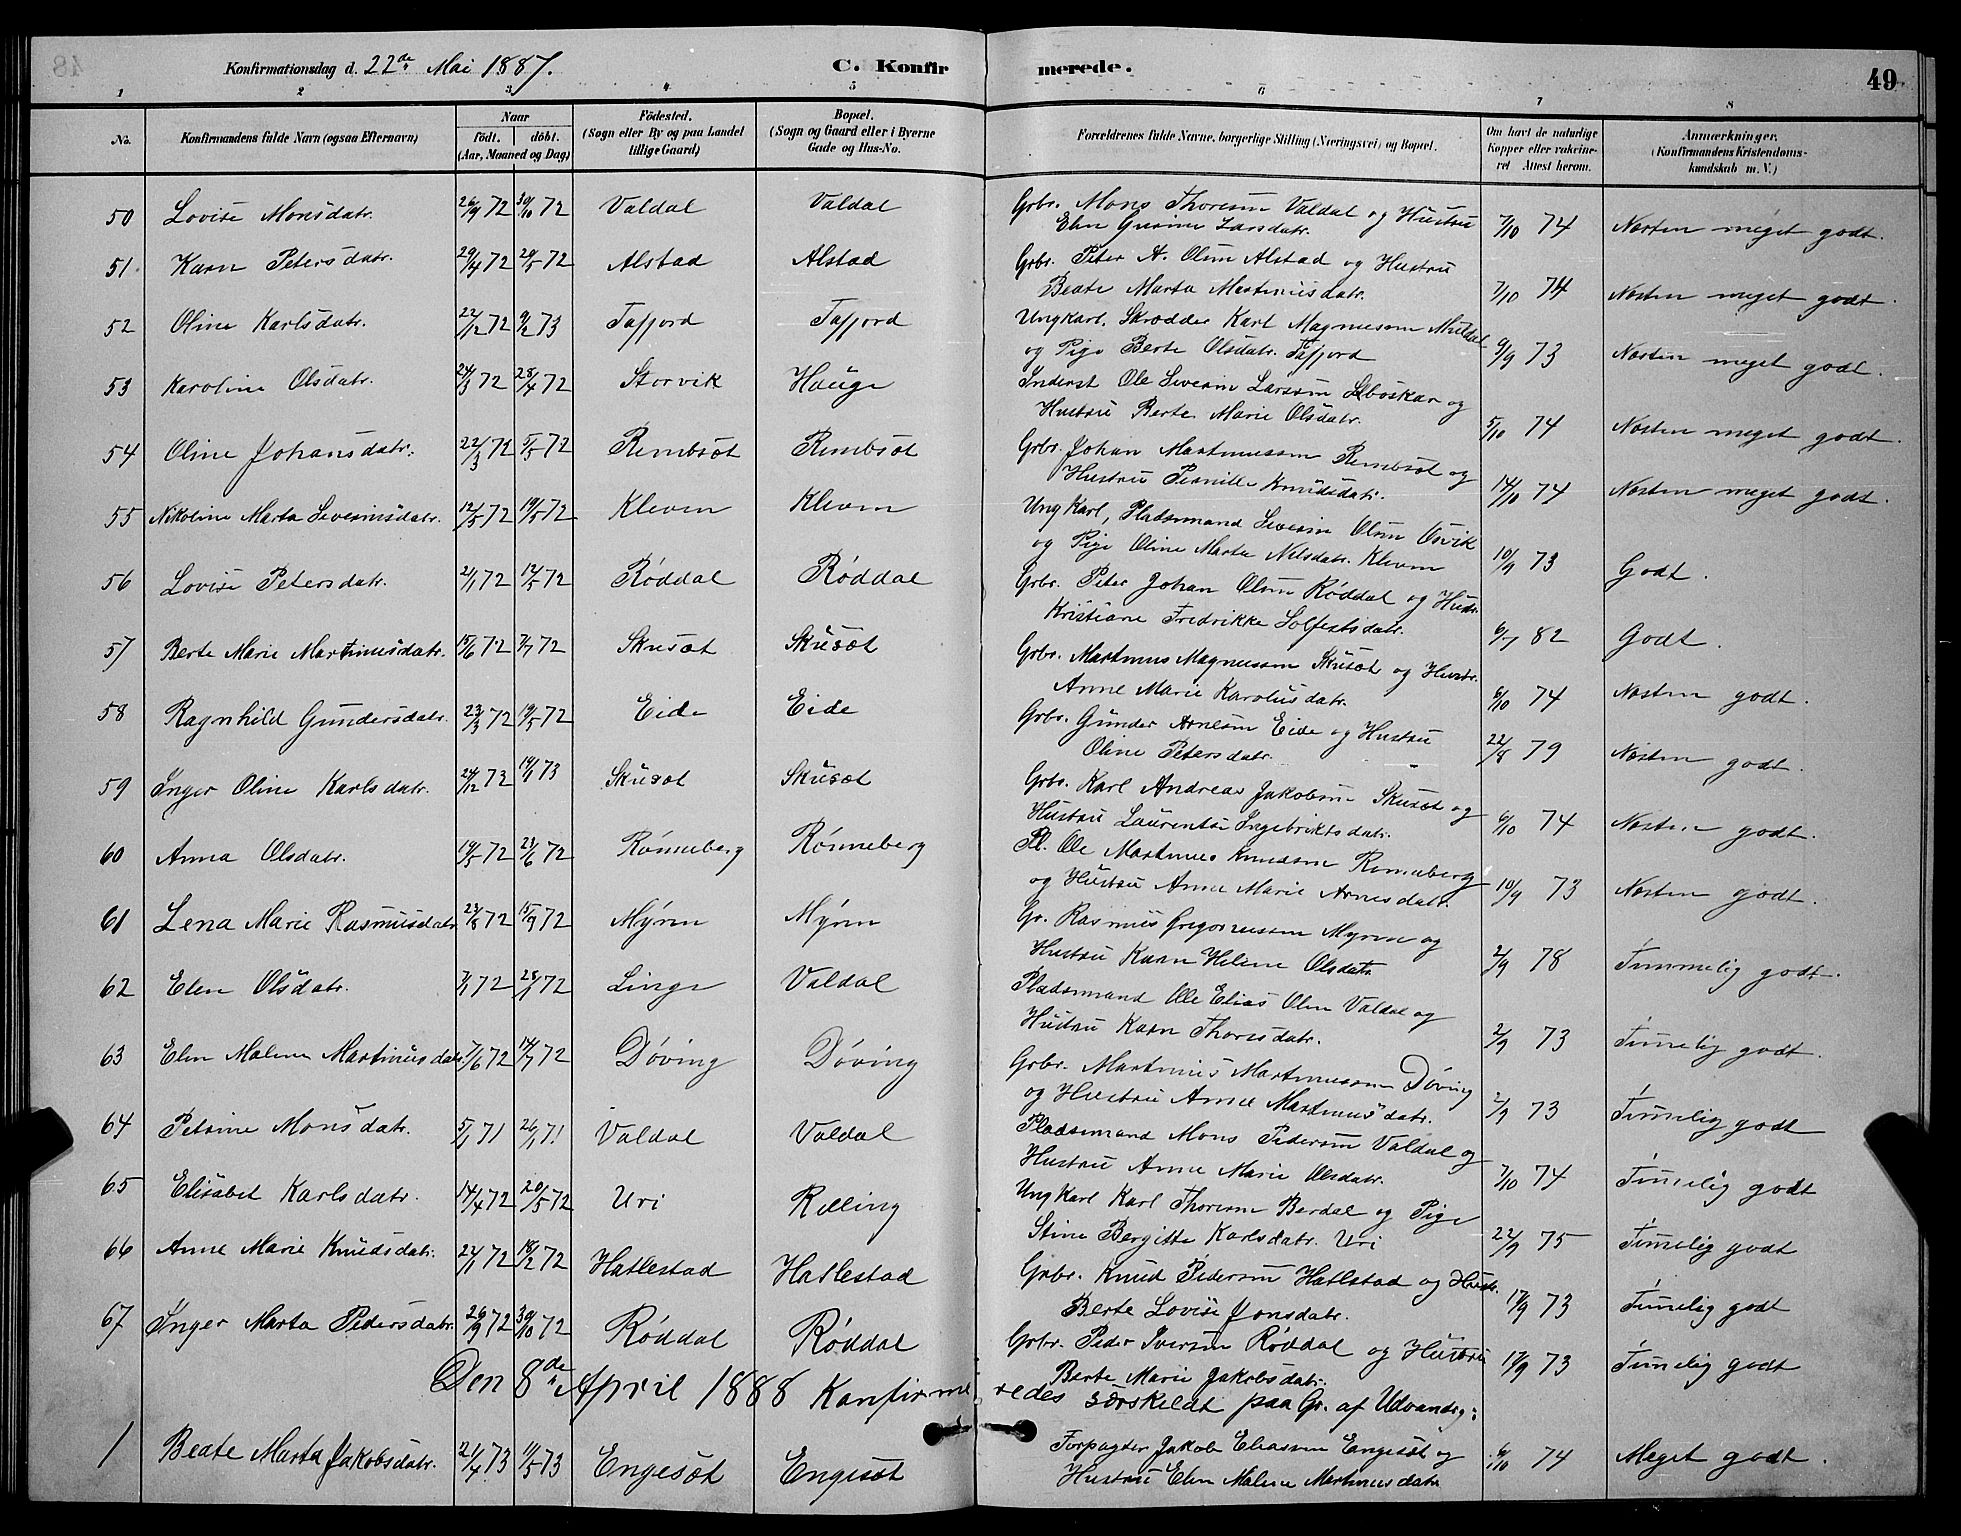 48
Konfirmationsdag d. 22de Mai 1887.
C. Konfirmerede.
49
1 2 3 4 5 6 7 8
No.
Konfirmandens fulde Navn (ogsaa Efternavn)
Naar
födt. döbt.
(Aar, Maaned og Dag)
Födested.
(Sogn eller By og paa Landet
tillige Gaard)
Bopæl.
(Sogn og Gaard eller i Byerne
Gade og Hus-No.
Forældrenes fulde Navne, borgerlige Stilling (Næringsvei) og Bopæl.
Om havt de naturlige
Kopper eller vakcine-
ret Attest herom.
Anmærkninger.
(Konfirmandens Kristendoms-
kundskab m. V.)
50 Lovise Monsdatr. 26/9 72 30/10 72 Valdal Valdal Grbr. Mons Thoresen Valdal og Hustru 7/10 74 Næsten meget godt.
Elen Larsdatr.
51 Karn Petersdatr. 29/4 72 20/5 72 Alstad Alstad Grbr. Peter A. Olsen Alstad og Hustru 7/10 74 Næsten meget godt.
Beate Marta Martinusdatr.
52 Oline Karlsdatr. 22/12 72 9/2 73 Tafjord Tafjord Ungkarl. Skrædder Karl Magnussen Muldal 9/9 73 Næsten meget godt.
og Pige Berte Olsdatr. Tafjord
53 Karoline Olsdatr. 24/3 72 28/4 72 Storvik Hauge Inderst Ole Severin Larssen og 5/10 74 Næsten meget godt.
Hustru Berte Marie Olsdatr.
54 Oline Johansdatr. 22/3 72 5/5 72 Rembsæt Rembsæt Grbr. Johan Martinussen Rembsæt og 14/10 74 Næsten meget godt.
Hustru Pernille Knudsdatr.
55 Nikoline Marta Severinsdatr. 12/5 72 19/5 72 Kleven Kleven Ungkarl, Pladsmand Severin Olsen Osvik 10/9 73 Godt.
og Pige Oline Marta Nilsdatr. Kleven
56 Lovise Petersdatr. 2/1 72 12/5 72 Røddal Røddal Grbr. Peter Johan Olsen Røddal og Hustr. 6/7 82 Godt.
Kristiane Fredrikke Solfestsdatr.
57 Berte Marie Martinusdatr. 15/6 72 7/7 72 Skusæt Skusæt Grbr. Martinus Magnussen Skusæt og Hustr. 6/10 74 Næsten godt.
Anne Marie Karolusdatr.
58 Ragnhild Gundersdatr. 23/3 72 19/5 72 Eide Eide Grbr. Gunder Arnesen Eide og Hustru 22/8 79 Næsten godt.
Oline Petersdatr.
59 Inger Oline Karlsdatr. 24/12 73 19/1 73 Skusæt Skusæt Grbr. Karl Andreas Jakobsen Skusæt og 6/10 74 Næsten godt.
Hustru Laurentse Ingebriktsdatr.
60 Anna Olsdatr. 19/5 72 23/6 72 Rønneberg Rønneberg Pl. Ole Martinus Knudsen Rønneberg 10/9 73 Næsten godt.
og Hustru Anne Marie Arnesdatr.
61 Lena Marie Rasmusdatr 23/8 72 15/9 72 Myren Myren Gr. Rasmus Gregoriussen Myren og 2/9 78 Temmelig godt.
Hustru Karn Helene Olsdatr.
62 Elen Olsdatr. 7/1 72 28/1 72 Linge Valdal Pladsmand Ole Elias Olsen Valdal og 2/9 73 Temelig godt.
Hustru Karn Thoresdatr.
63 Elen Malene Martinusdatr. 7/6 72 14/7 72 Døving Døving Grbr. Martinus Martinussen Døving 2/9 73 Temelig godt
og Hustru Anne Martinusdatr.
64 Petrine Monsdatr. 5/1 71 26/1 71 Valdal Valdal Pladsmand Mons Pedersen Valdal og 7/10 74 Temelig godt
Hustru Anne Marie Olsdatr.
65 Elisabet Karlsdatr. 14/4 72 20/5 72 Uri Relling Ungkarl Karl Thoresen Berdal og Pige 22/9 75 Temelig godt
Stine Bergitte Karlsdatr. Uri
66 Anne Marie Knudsdatr. 24/1 72 18/2 72 Hatlestad Hatlestad Grbr. Knud Pedersen Hatlestad og Hustr. 17/9 73 Temelig godt
Berte Lovise Jonsdatr.
67 Inger Marta Pedersdatr. 26/9 72 30/10 72 Røddal Røddal Grbr. Peder Iversen Røddal og Hustru 17/9 73 Temelig godt
Berte Marie Jakobsdatr.
Den 8de April 1888 Konfirmeredes særskeldt paa Gr. af Udvandrg:
1 Beate Marta Jakobsdatr. 21/4 73 11/5 73 Engesæt Engesæt Forpagter Jakob Eliassen Engesæt og 6/10 74 Meget godt.
Hustru Elen Malene Martinusdatr